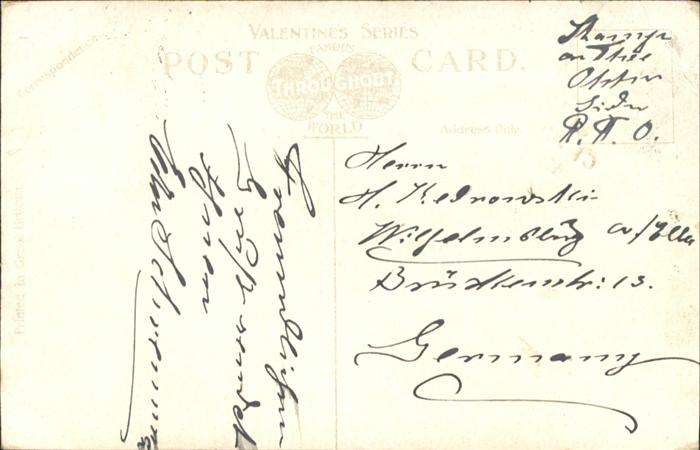 Correspondence
VALENTINES SERIES
FAMOUS
POST CARD.
THROUGHOUT
THE
WORLD
Address Only
Stamp
on The
Other
Side
P. T. O.
Herrn
H. Kedrowski
Wilhelmsburg a/Elbe
Brückenstr: 13.
Germany
Freundlichen
Gruß sendet
Ihnen
Printed in Great Britain